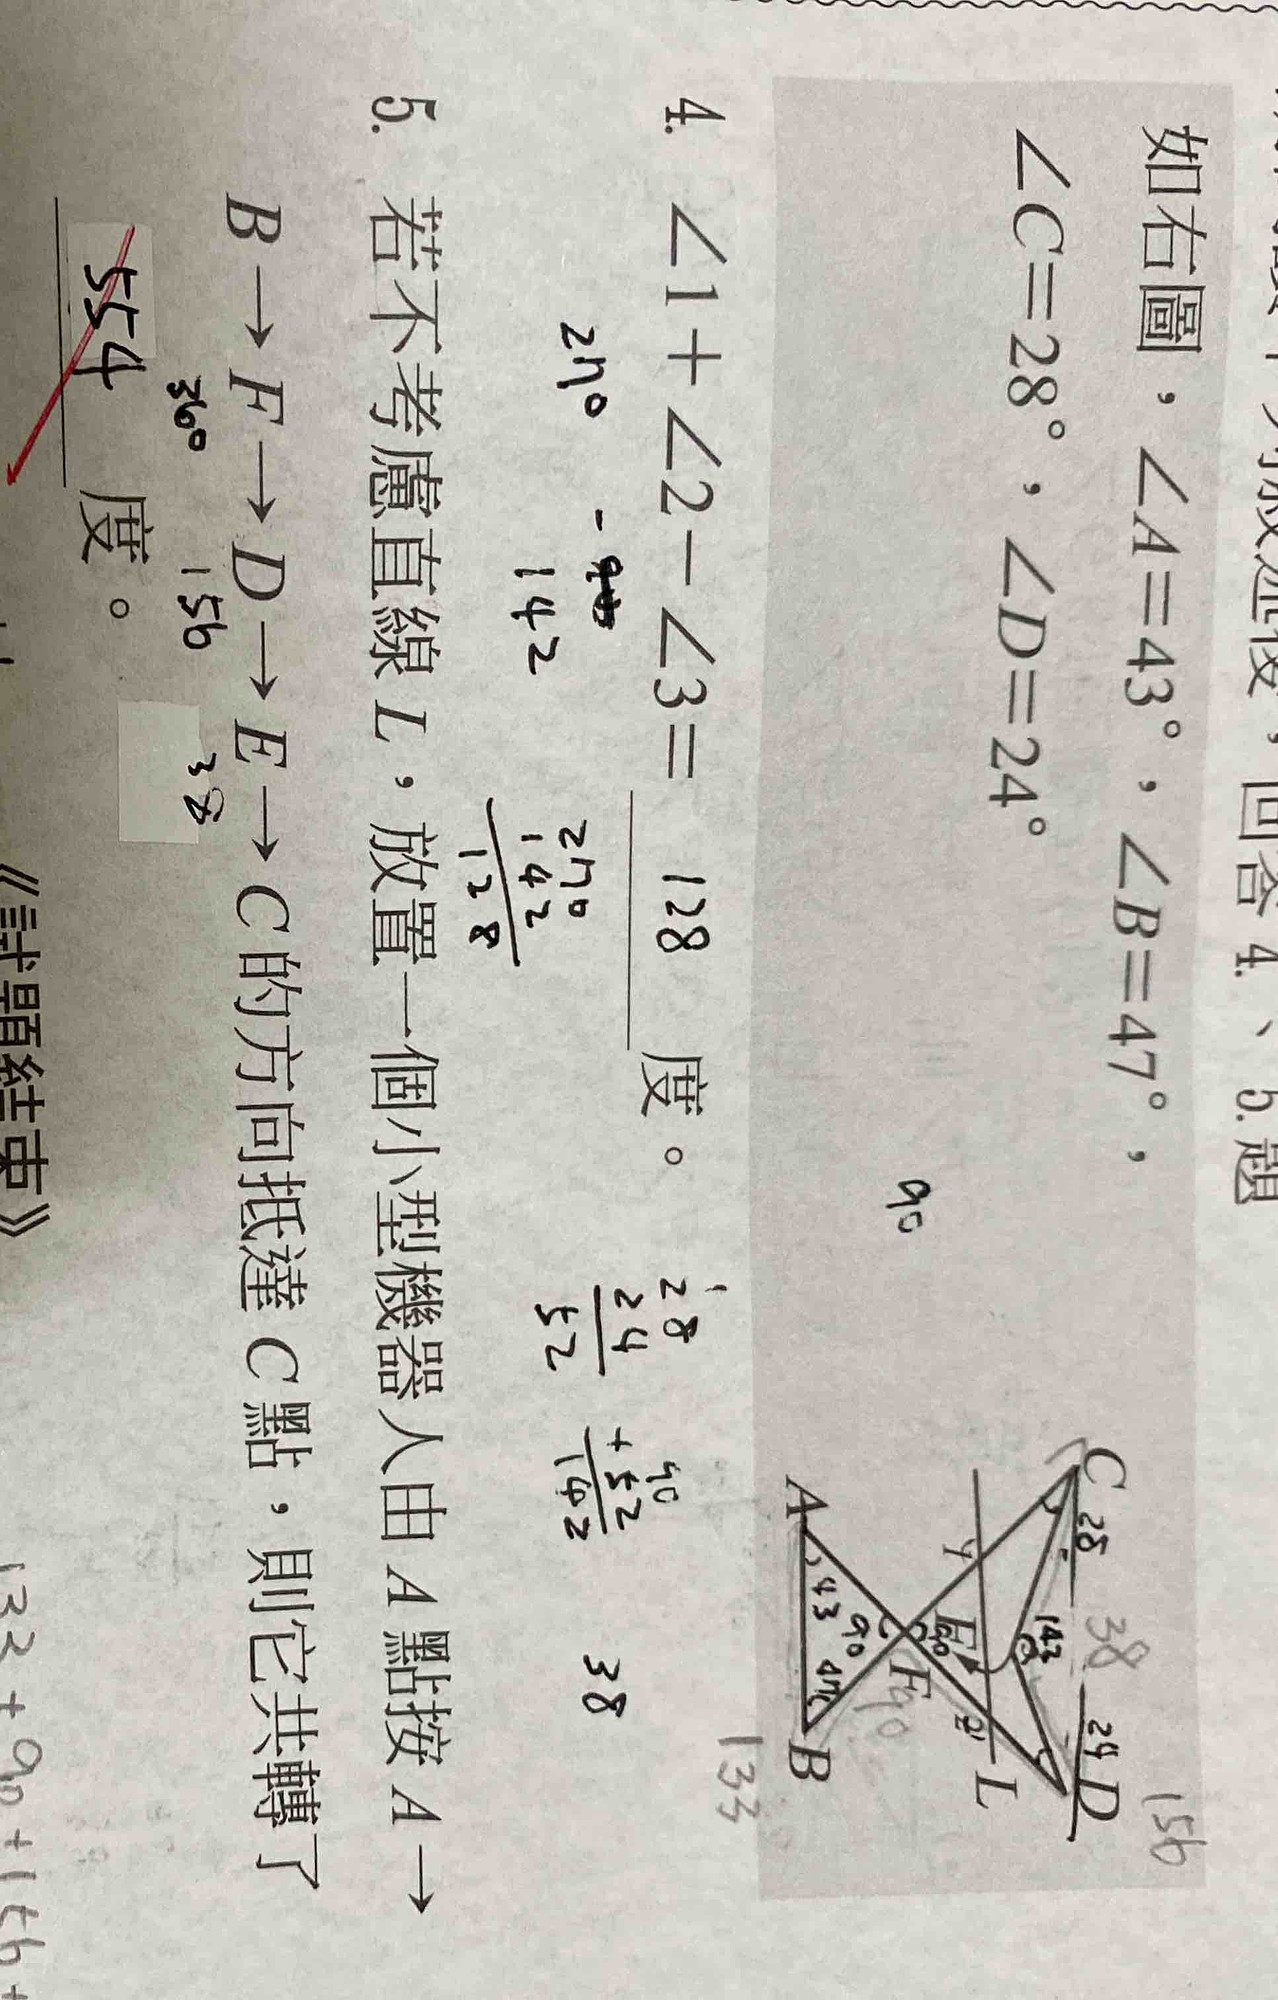 回答 4.、5.題
如右圖，∠A＝43°，∠B＝47°，
∠C＝28°，∠D＝24°
90
C 28 38 24 D 156
142
1 E 90 2 L
F 90
90
A 43 47 B
133
4. ∠1＋∠2－∠3＝ 128 度。
270 － 142
270
142
128
28
24
52
90
+ 52
142
38
5. 若不考慮直線 L，放置一個小型機器人由 A 點按 A→
B→F→D→E→C 的方向抵達 C 點，則它共轉了
360 156 38
554 度。
《試題結束》
133 + 90 + 156 +